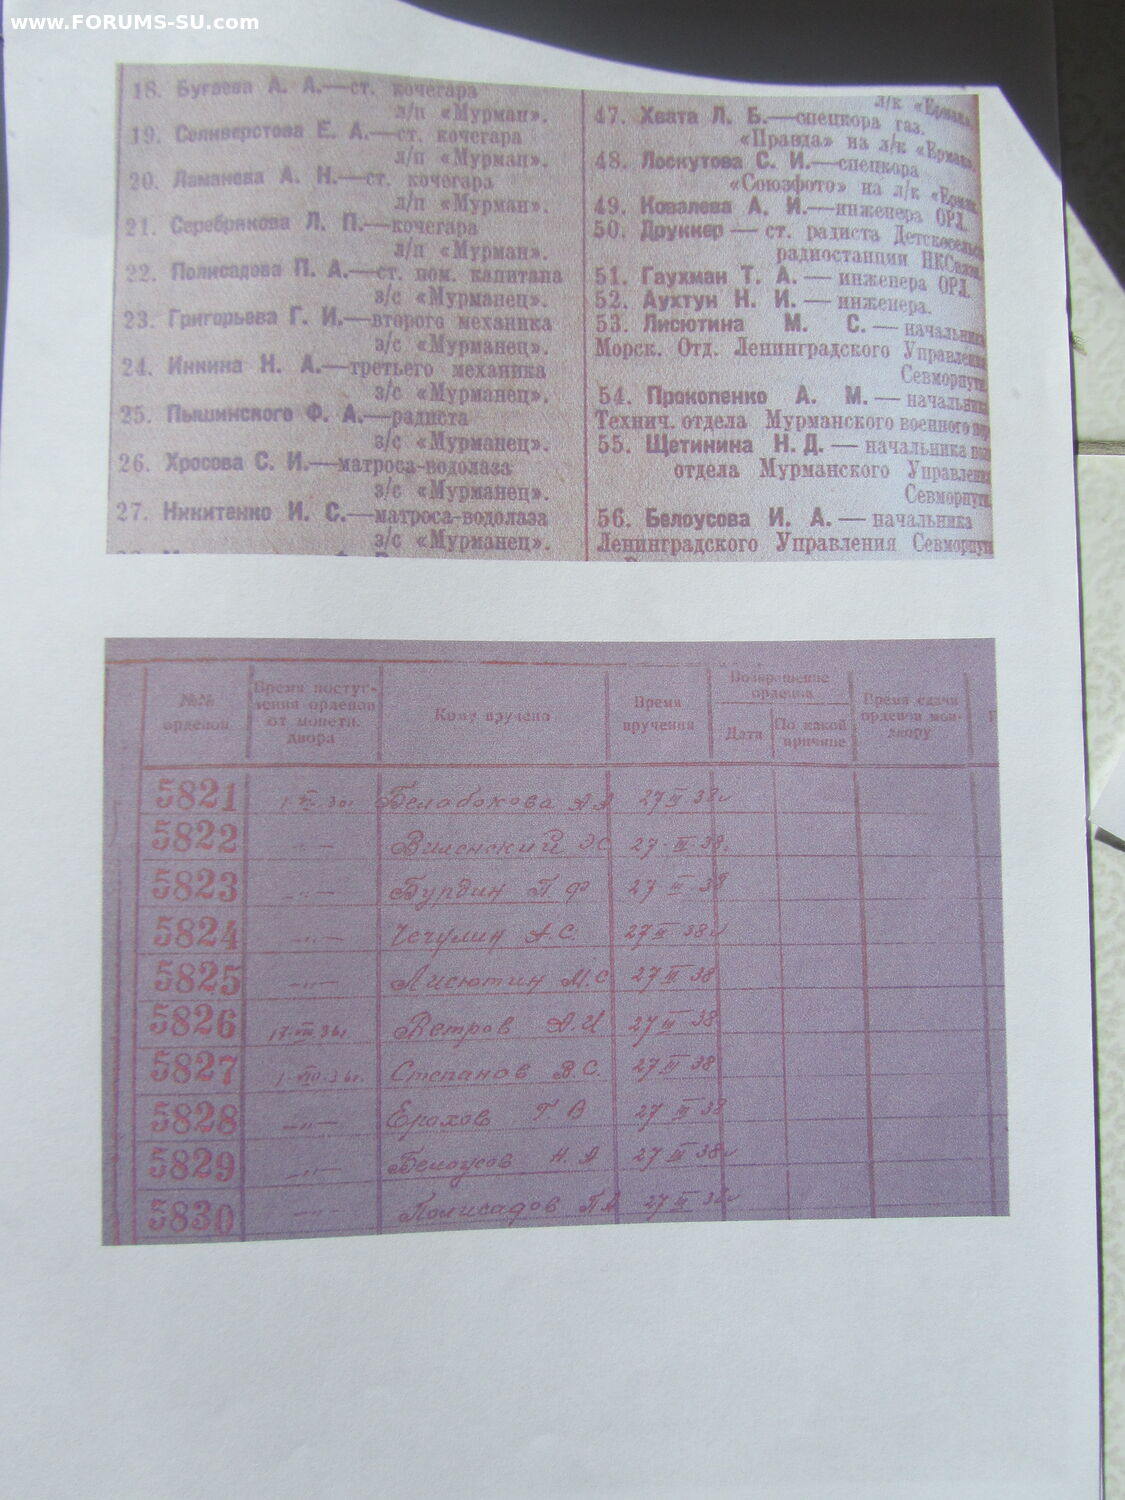 www.FORUMS-SU.com
18. Бугаева А. А.—ст. кочегара
л/п «Мурман».
19. Селиверстова Е. А.—ст. кочегара
л/п «Мурман».
20. Ламанова А. Н.—ст. кочегара
л/п «Мурман».
21. Серебрякова Л. П.—кочегара
л/п «Мурман».
22. Полисадова П. А.—ст. пом. капитана
з/с «Мурманец».
23. Григорьева Г. И.—второго механика
з/с «Мурманец».
24. Инкина Н. А.—третьего механика
з/с «Мурманец».
25. Пышинского Ф. А.—радиста
з/с «Мурманец».
26. Хросова С. И.—матроса-водолаза
з/с «Мурманец».
27. Никитенко И. С.—матроса-водолаза
з/с «Мурманец».
л/к «Ермак».
47. Хвата Л. Б.—спецкора газ.
«Правда» на л/к «Ермак».
48. Лоскутова С. И.—спецкора
«Союзфото» на л/к «Ермак».
49. Ковалева А. И.—инженера ОРЛ.
50. Друккер — ст. радиста Детскосельск
радиостанции НКСвязи.
51. Гаухман Т. А. — инженера ОРЛ.
52. Аухтун Н. И. — инженера.
53. Лисютина М. С. — начальника
Морск. Отд. Ленинградского Управления
Севморпути.
54. Прокопенко А. М. — начальника
Технич. отдела Мурманского военного пор
55. Щетинина Н. Д. — начальника пол
отдела Мурманского Управления
Севморпути.
56. Белоусова И. А. — начальника
Ленинградского Управления Севморпути
№№ орденов
Время поступ-
ления орденов
от монетн.
двора
Кому вручено
Время вручения
Возвращение орденов
Дата
По какой причине
Время сдачи
орденов мон-
двору
5821 1 VII 36г Белобокова А А 27 III 38г
5822 —〃— Виленский Э С 27 III 38г.
5823 —〃— Бурдин П Ф 27 III 38
5824 —〃— Чечулин А. С. 27 III 38г
5825 —〃— Лисютин М. С 27 III 38
5826 17. VIII 36г Ветров А И 27 III 38
5827 1. VIII. 36г. Степанов В. С. 27 III 38
5828 —〃— Ерохов Г В 27 III 38
5829 —〃— Белоусов И. А 27 III 38г
5830 —〃— Полисадов П А 27 III 38г